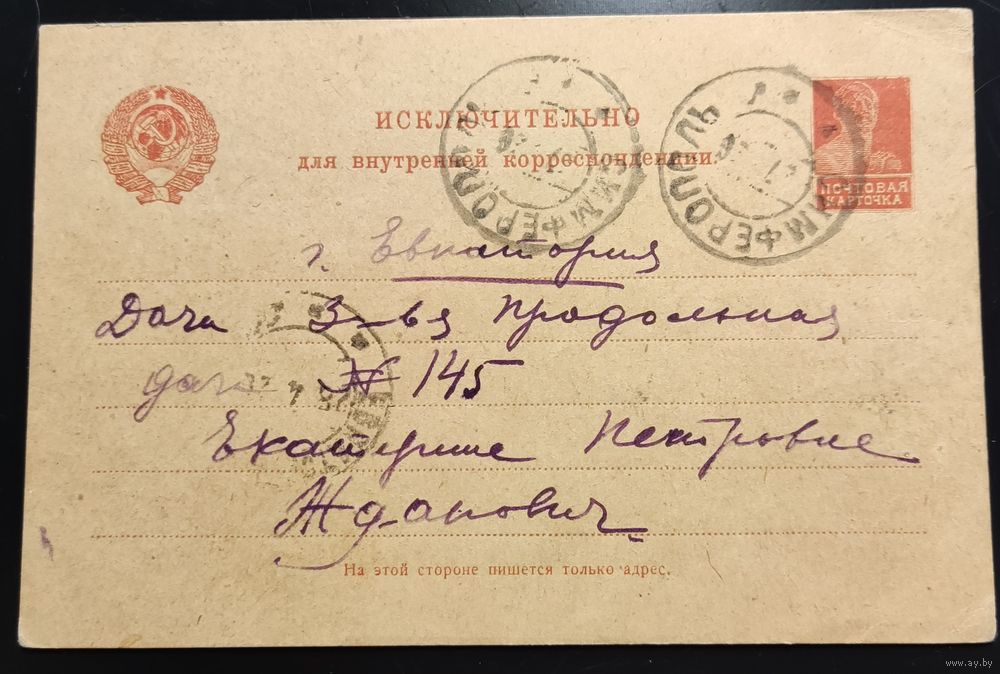 ИСКЛЮЧИТЕЛЬНО
для внутренней корреспонденции.
СИМФЕРОПОЛЬ
СИМФЕРОПОЛЬ
ПОЧТОВАЯ
КАРТОЧКА
г. Евпатория
Дача 3-ья Продольная
дача № 145
Екатерине Петровне
Жданович
На этой стороне пишется только адрес.
www.ay.by